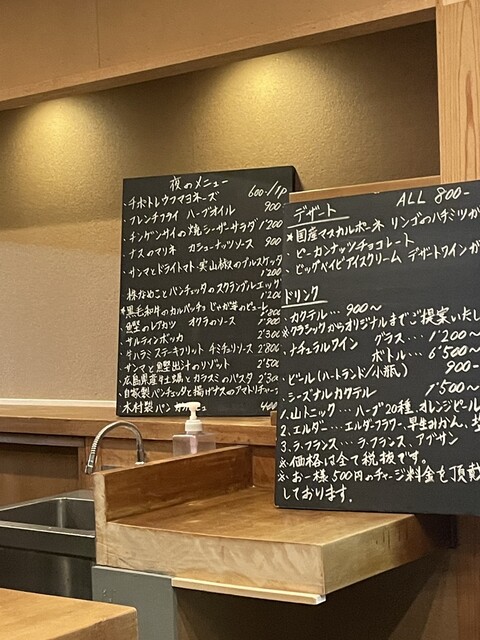 夜のメニュー
・チポトレウフマヨネーズ 600-/1P
・フレンチフライ ハーブオイル 900-
・チンゲンサイの焼シーザーサラダ 1'200
・ナスのマリネ カシューナッツソース 900
・サンマとドライトマト・実山椒のブルスケッタ
1'200
・株なめことパンチェッタのスクランブルエッグ
1'200
★黒毛和牛のカルパッチョ じゃが芋のピューレ
・鰹のレアカツ オクラのソース
・サルティンボッカ 2'300
・牛ハラミステーキフリット チミチュリソース 2'800
・サンマと鰹出汁のリゾット 2'500
・広島県産牡蠣とカラスミのパスタ 2'300
・自家製パンチェッタと揚げナスのアマトリチャーナ
・木村製パン 400
デザート ALL 800-
★国産マスカルポーネ リンゴのハチミツが
・ピーカンナッツチョコレート
・ビッグベイビアイスクリーム デザートワインが
ドリンク
・カクテル… 900〜
※クラシックからオリジナルまでご提案いたし
・ナチュラルワイン グラス… 1'200〜
ボトル… 6'500〜
・ビール(ハートランド/小瓶) 900-
・シーズナルカクテル 1'500〜
1.山トニック…ハーブ20種、オレンジピール
2.エルダー…エルダーフラワー、早生みかん、塩
3.ラ・フランス…ラ・フランス、アブサン
※価格は全て税抜です。
※お一様500円のチャージ料金を頂戴
しております。